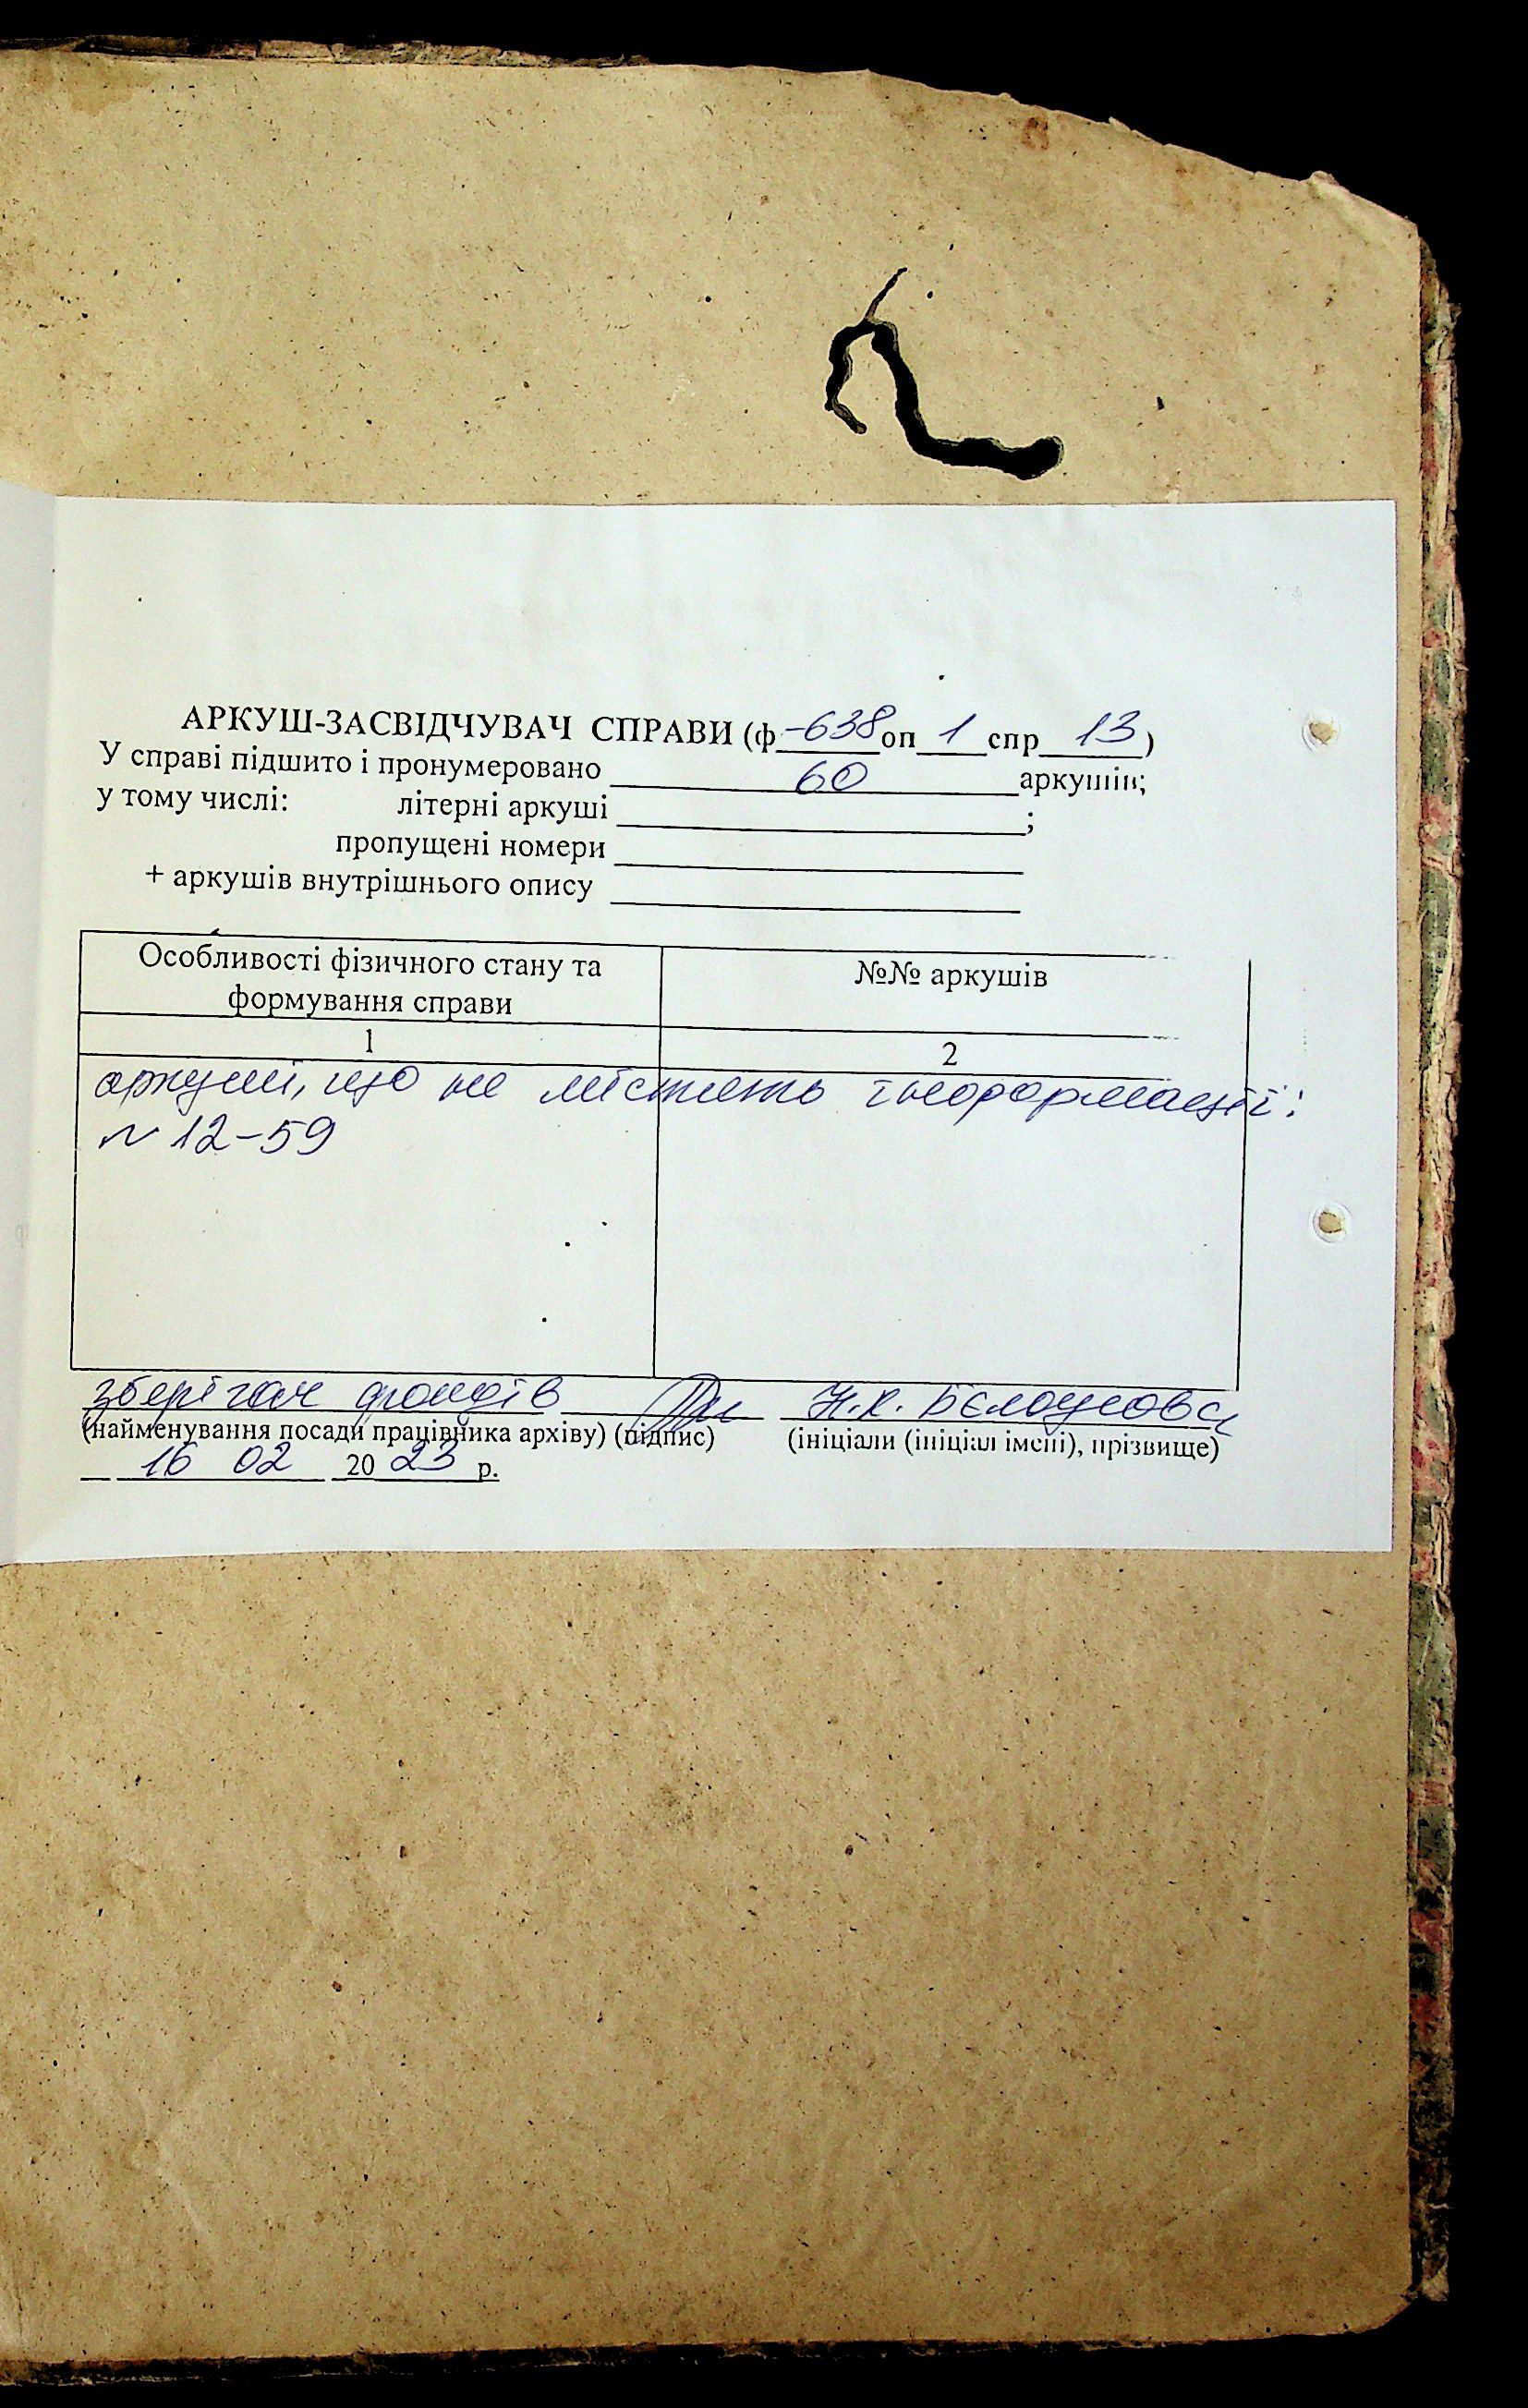 АРКУШ-ЗАСВІДЧУВАЧ СПРАВИ (ф -638 оп 1 спр 13)
У справі підшито і пронумеровано 60 аркушів;
у тому числі: літерні аркуші ;
пропущені номери
+ аркушів внутрішнього опису
Особливості фізичного стану та формування справи
№№ аркушів
1
2
аркуші, що не містить інформації:
№ 12-59
зберігач фондів Н.К. Бєлоусова
(найменування посади працівника архіву) (підпис) (ініціали (ініціал імені), прізвище)
16 02 2023 р.